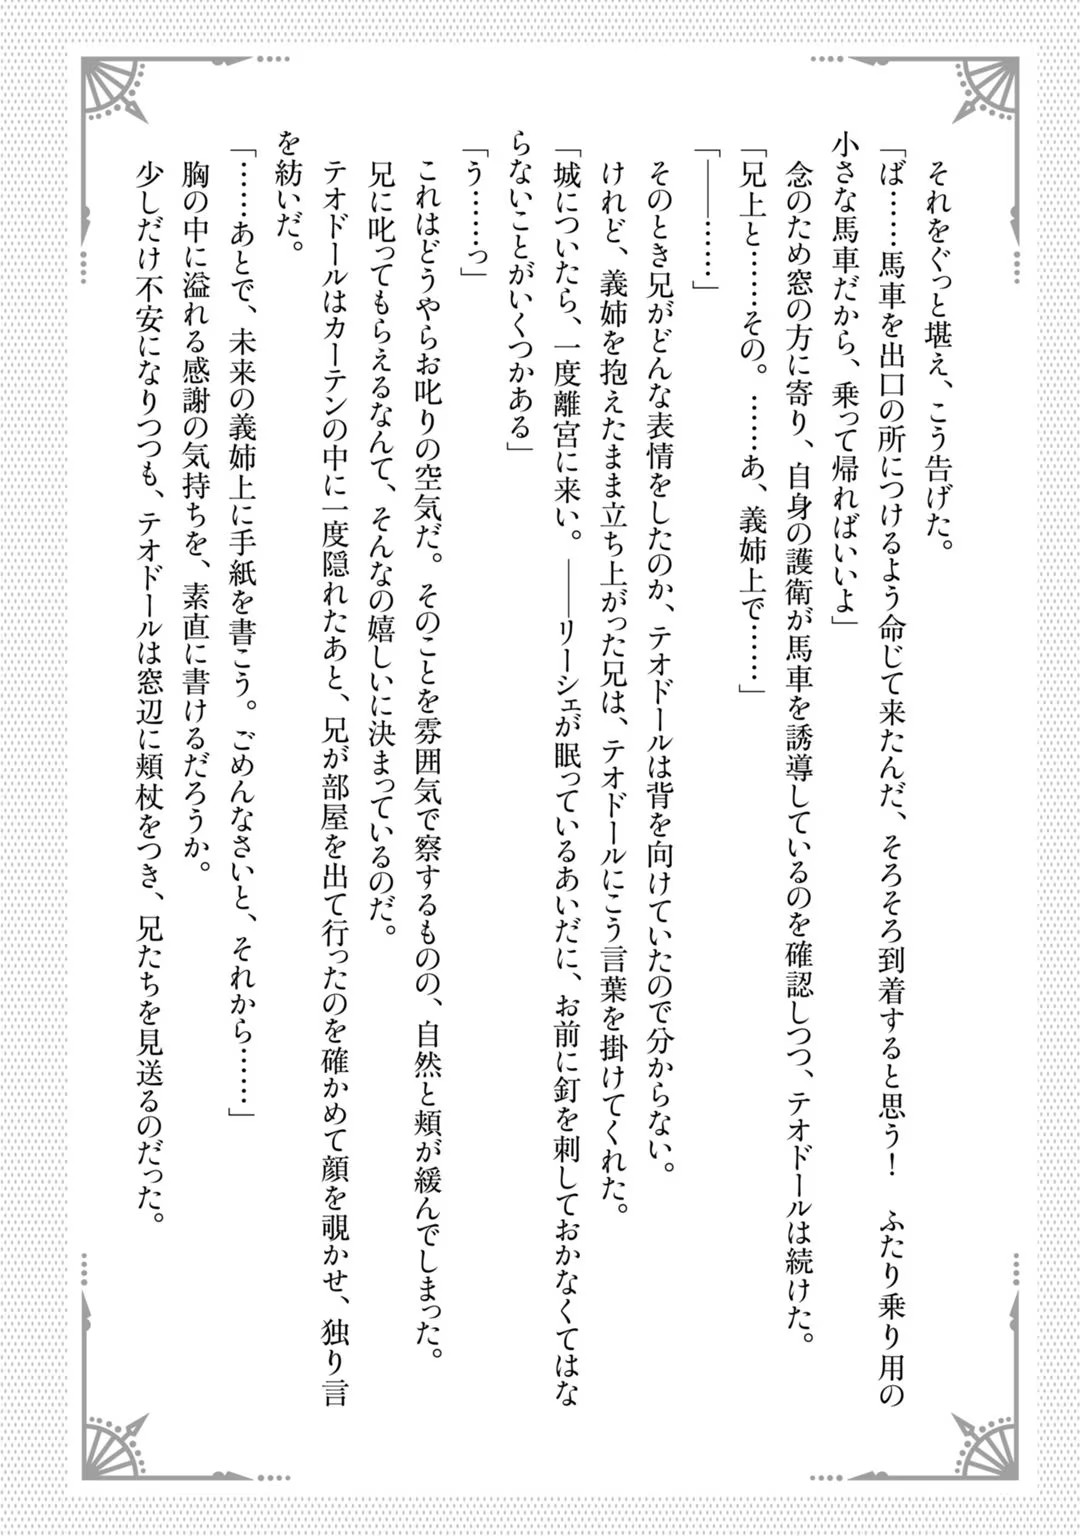 それをぐっと堪え、こう告げた。
「ば……馬車を出口の所につけるよう命じて来たんだ、そろそろ到着すると思う！　ふたり乗り用の
小さな馬車だから、乗って帰ればいいよ」
念のため窓の方に寄り、自身の護衛が馬車を誘導しているのを確認しつつ、テオドールは続けた。
「兄上と……その。……あ、義姉上で……」
「――……」
そのとき兄がどんな表情をしたのか、テオドールは背を向けていたので分からない。
けれど、義姉を抱えたまま立ち上がった兄は、テオドールにこう言葉を掛けてくれた。
「城についたら、一度離宮に来い。――リーシェが眠っているあいだに、お前に釘を刺しておかなくてはな
らないことがいくつかある」
「う……っ」
これはどうやらお叱りの空気だ。そのことを雰囲気で察するものの、自然と頬が緩んでしまった。
兄に叱ってもらえるなんて、そんなの嬉しいに決まっているのだ。
テオドールはカーテンの中に一度隠れたあと、兄が部屋を出て行ったのを確かめて顔を覗かせ、独り言
を紡いだ。
「……あとで、未来の義姉上に手紙を書こう。ごめんなさいと、それから……」
胸の中に溢れる感謝の気持ちを、素直に書けるだろうか。
少しだけ不安になりつつも、テオドールは窓辺に頬杖をつき、兄たちを見送るのだった。